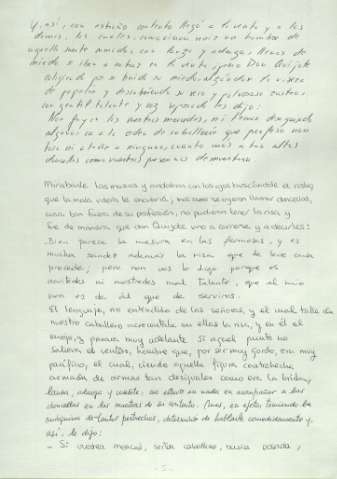 Y, así, con extraño contento llegó a la venta y a las
damas, las cuales, como vieron venir un hombre de
aquella suerte armado, con lanza y adarga, llenas de
miedo se iban a entrar en la venta; pero Don Quijote
coligiendo por su huida su miedo, alzándose la visera
de papelón y descubriendo su seco y polvoroso rostro,
con gentil talante y voz reposada les dijo:
Non fuyan las vuestras mercedes, ni teman desaguisado
alguno ca a la orden de caballería que profeso non
toca ni atañe a ninguno, cuanto más a tan altas
doncellas como vuestras presencias demuestran
Mirábanle las mozas y andaban con los ojos buscándole el rostro,
que la mala visera le encubría; mas como se oyeron llamar doncellas,
cosa tan fuera de su profesión, no pudieron tener la risa y
fue de manera que don Quijote vino a correrse y a decirles:
Bien parece la mesura en las fermosas, y es
mucha sandez además la risa que de leve causa
procede; pero non vos lo digo porque os
acuitedes ni mostredes mal talante, que el mío
non es de ál que de serviros.
El lenguaje, no entendido de las señoras, y el mal talle de
nuestro caballero acrecentaba en ellas la risa, y en él el
enojo, y pasara muy adelante si aquel punto no
saliera el ventero, hombre que, por ser muy gordo, era muy
pacífico, el cual, viendo aquella figura contrahecha,
armada de armas tan desiguales como eran la brida,
lanza, adarga y coselete, no estuvo en nada en acompañar a las
doncellas en las muestras de su contento. Mas, en efeto, temiendo la
máquina de tantos pertrechos, determinó de hablarle comedidamente y,
así, le dijo:
- Si vuestra merced, señor caballero, busca posada,
- 5 -